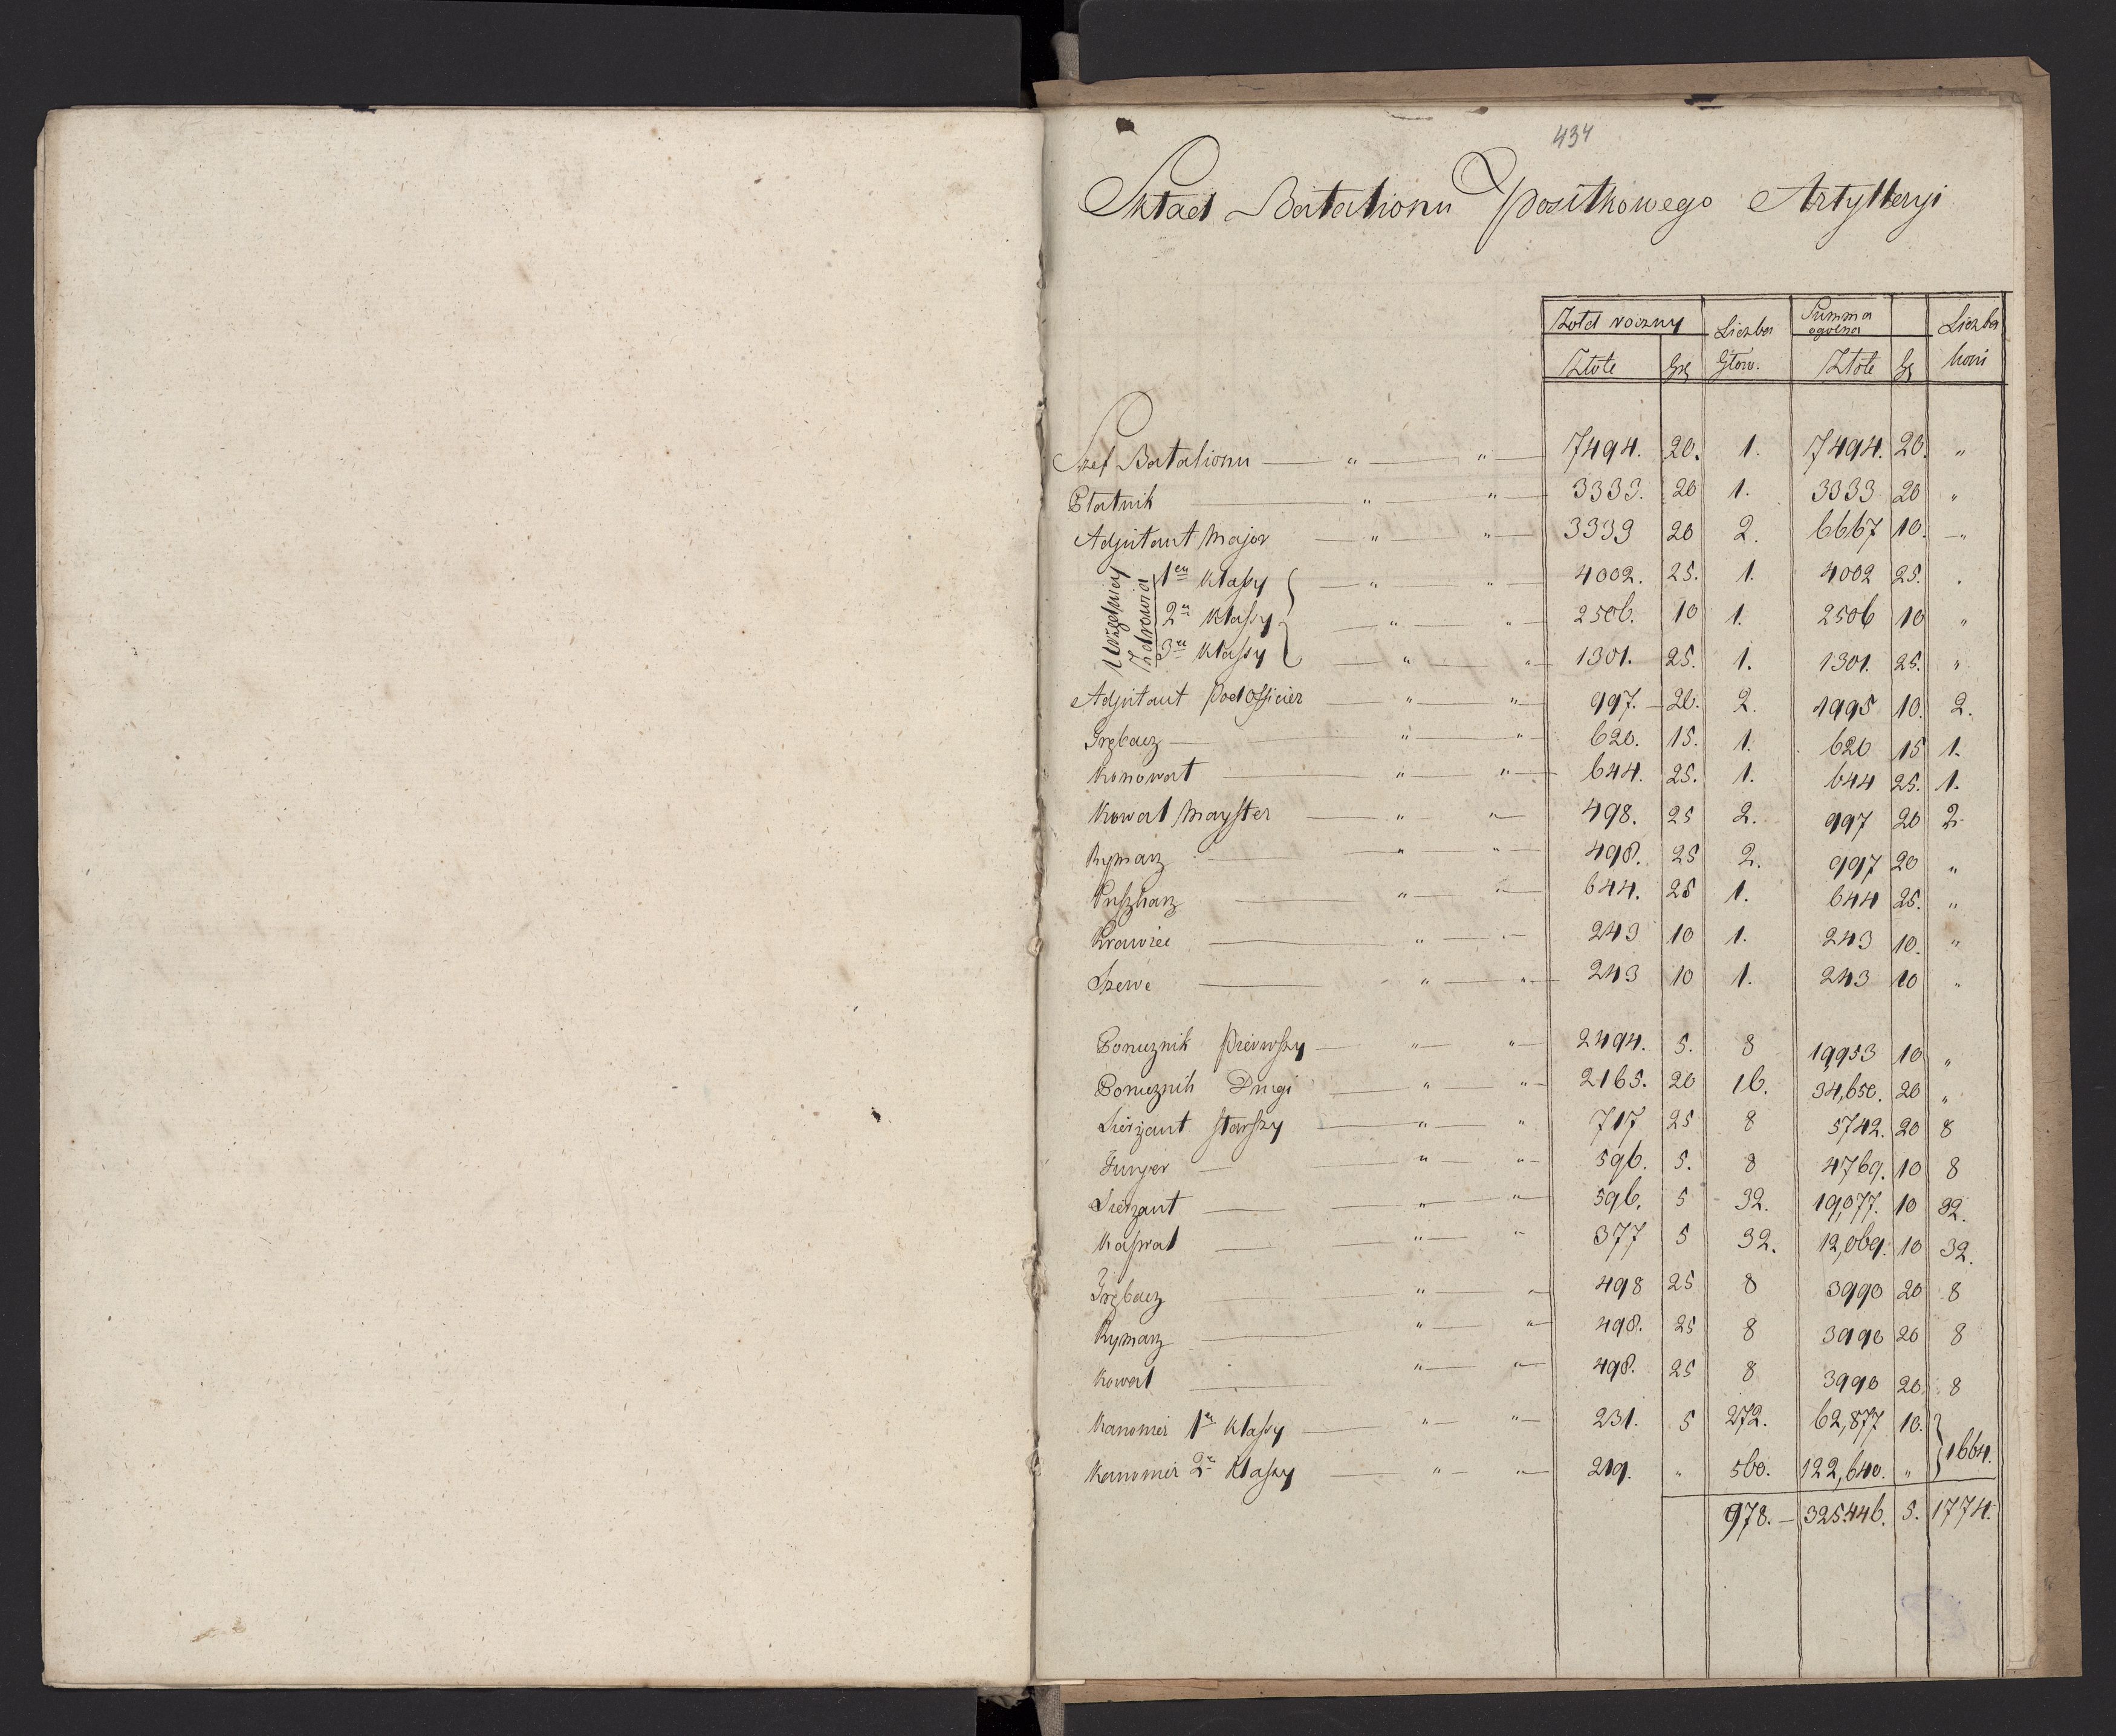 434
Skład Batalionu Posiłkowego Artylleryi
Żołd roczny Liczba Summa ogolna Liczba
Złote Gr Głow. Złote Gr koni
Szef Batalionu — " — " — 7494. 20. 1. 7494. 20. "
Płatnik — " " — 3333. 20 1. 3333 20 "
Adjutant Major — " — " — 3333 20 2. 6667 10. — "
Urzędnicy Zdrowia
1ey klassy — " — " — 4002. 25. 1. 4002 25. .
2ey klassy — " — " — 2506. 10 1. 2506 10 "
3ey klassy — " — " — 1301. 25. 1. 1301. 25. "
Adjutant Podofficier — " — " — 997. — 20. 2. 1995 10. 2.
Trębacz — " — " — 620. 15. 1. 620 15 1.
Konował — " — " — 644. 25. 1. 644 25. 1.
Kowal Mayster — " — " — 498. 25 2. 997 20 2.
Rymarz — " — " — 498. 25 2. 997 20 "
Puszkarz — " — " — 644. 25 1. 644 25. "
Krawiec — " — " — 243 10 1. 243 10. "
Szewc — " — " — 243 10 1. 243 10 "
Porucznik Pierwszy — " — " — 2494. 5. 8 19953 10 "
Porucznik Drugi — " — " — 2165. 20 16. 34,650. 20 "
Sierżant starszy — " — " 717 25 8 5742. 20 8
Furyer — " — " — 596. 5. 8 4769. 10 8
Sierżant — " — " — 596. 5 32. 19,077. 10 32.
Kapral — " — " — 377 5 32. 12,069. 10 32.
Trębacz — " — " — 498 25 8 3990 20 8
Rymarz — " — " — 498. 25 8 3990 20 8
Kowal — " — " — 498. 25 8 3990 20 8
Kanonier 1ey klassy — " — " — 231. 5 272. 62,877 10.
1664.
Kanonier 2ey klassy — " — " — 219. " 560. 122,640. "
978. — 325446. 5. 1774.